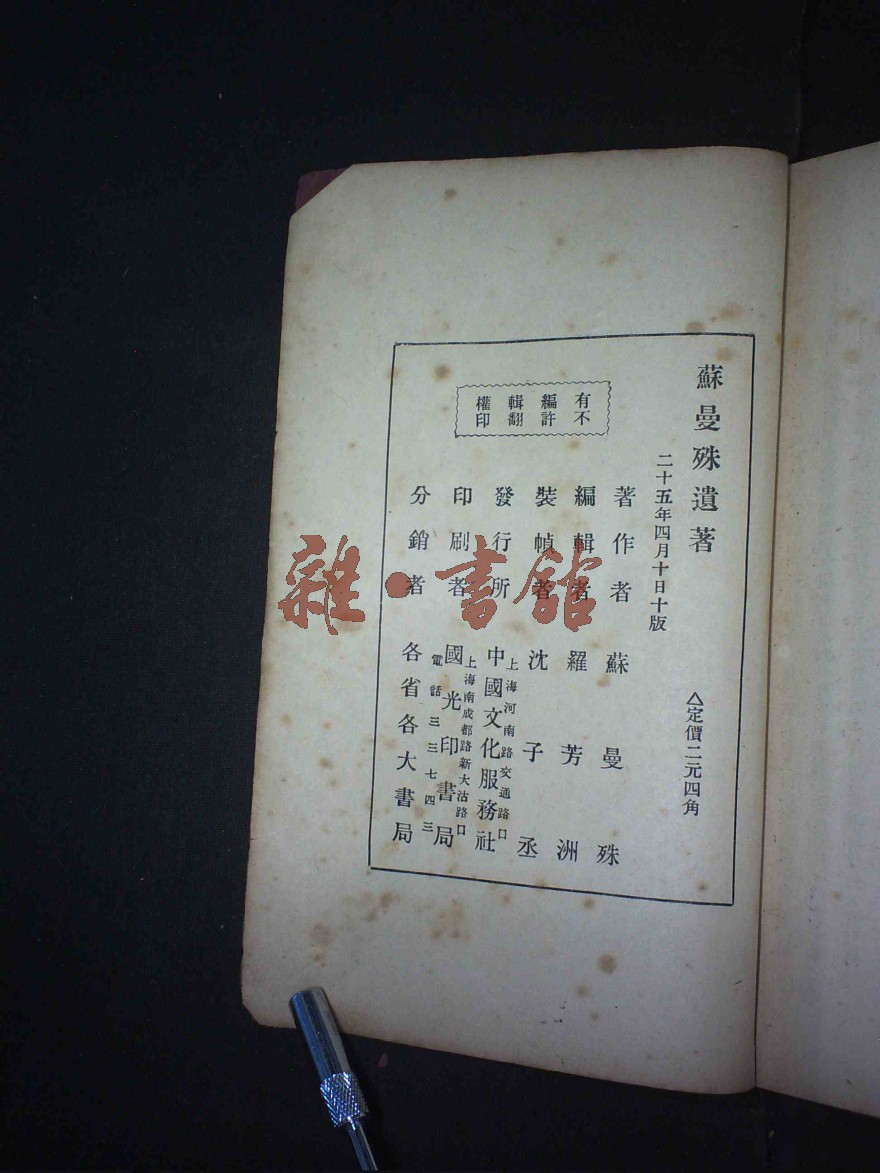 蘇曼殊遺著
二十五年四月十日十版
△定價二元四角
有不
編許
輯翻
權印
著作者 蘇曼殊
編輯者 羅芳洲
裝幀者 沈子丞
發行所 中國文化服務社
上海河南路交通路口
印刷者 國光印書局
上海南成都路新大沽路口
電話三三七四三
分銷者 各省各大書局
雜·書館